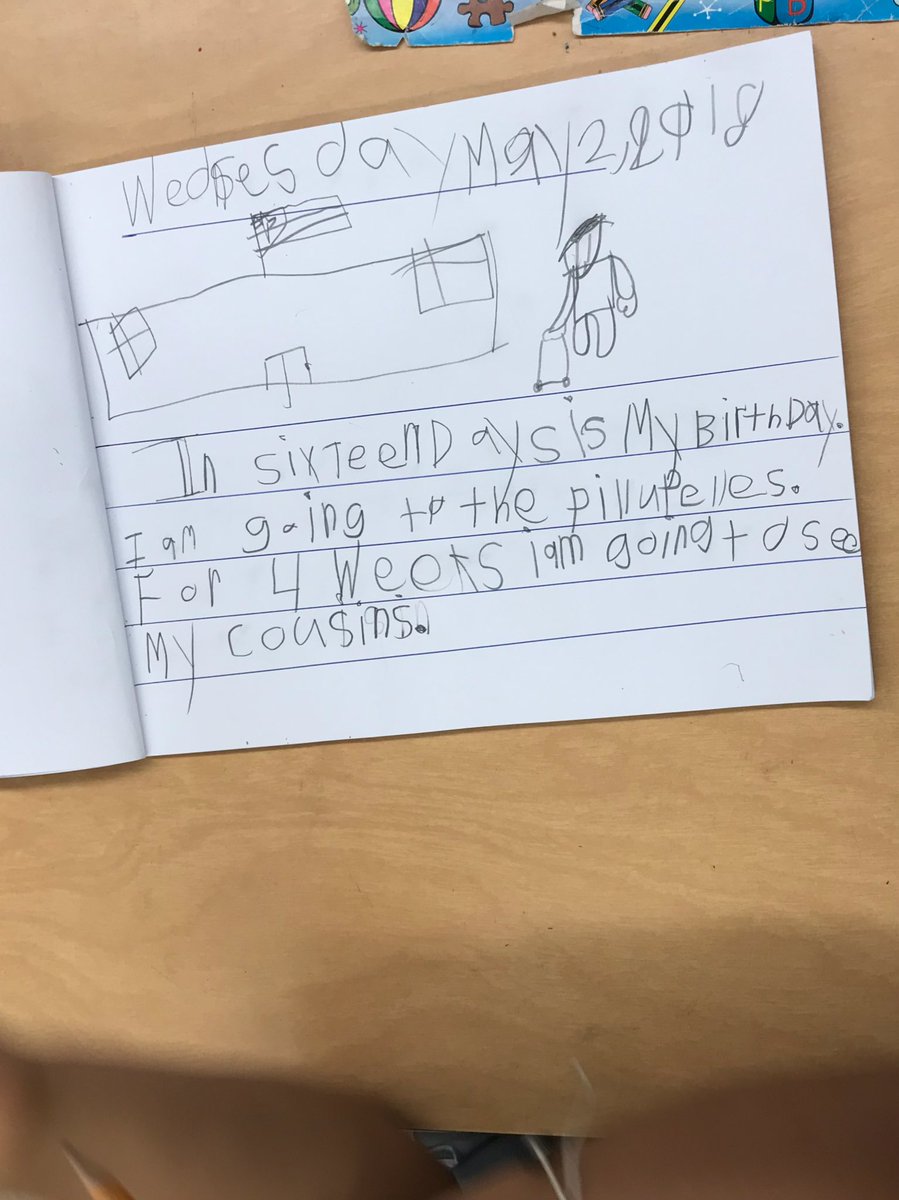 Wednesday May 2, 2018
In sixteen Days is My BirthDay.
I am going to the pillupelles.
For 4 Weeks i am going to see
My cousins.